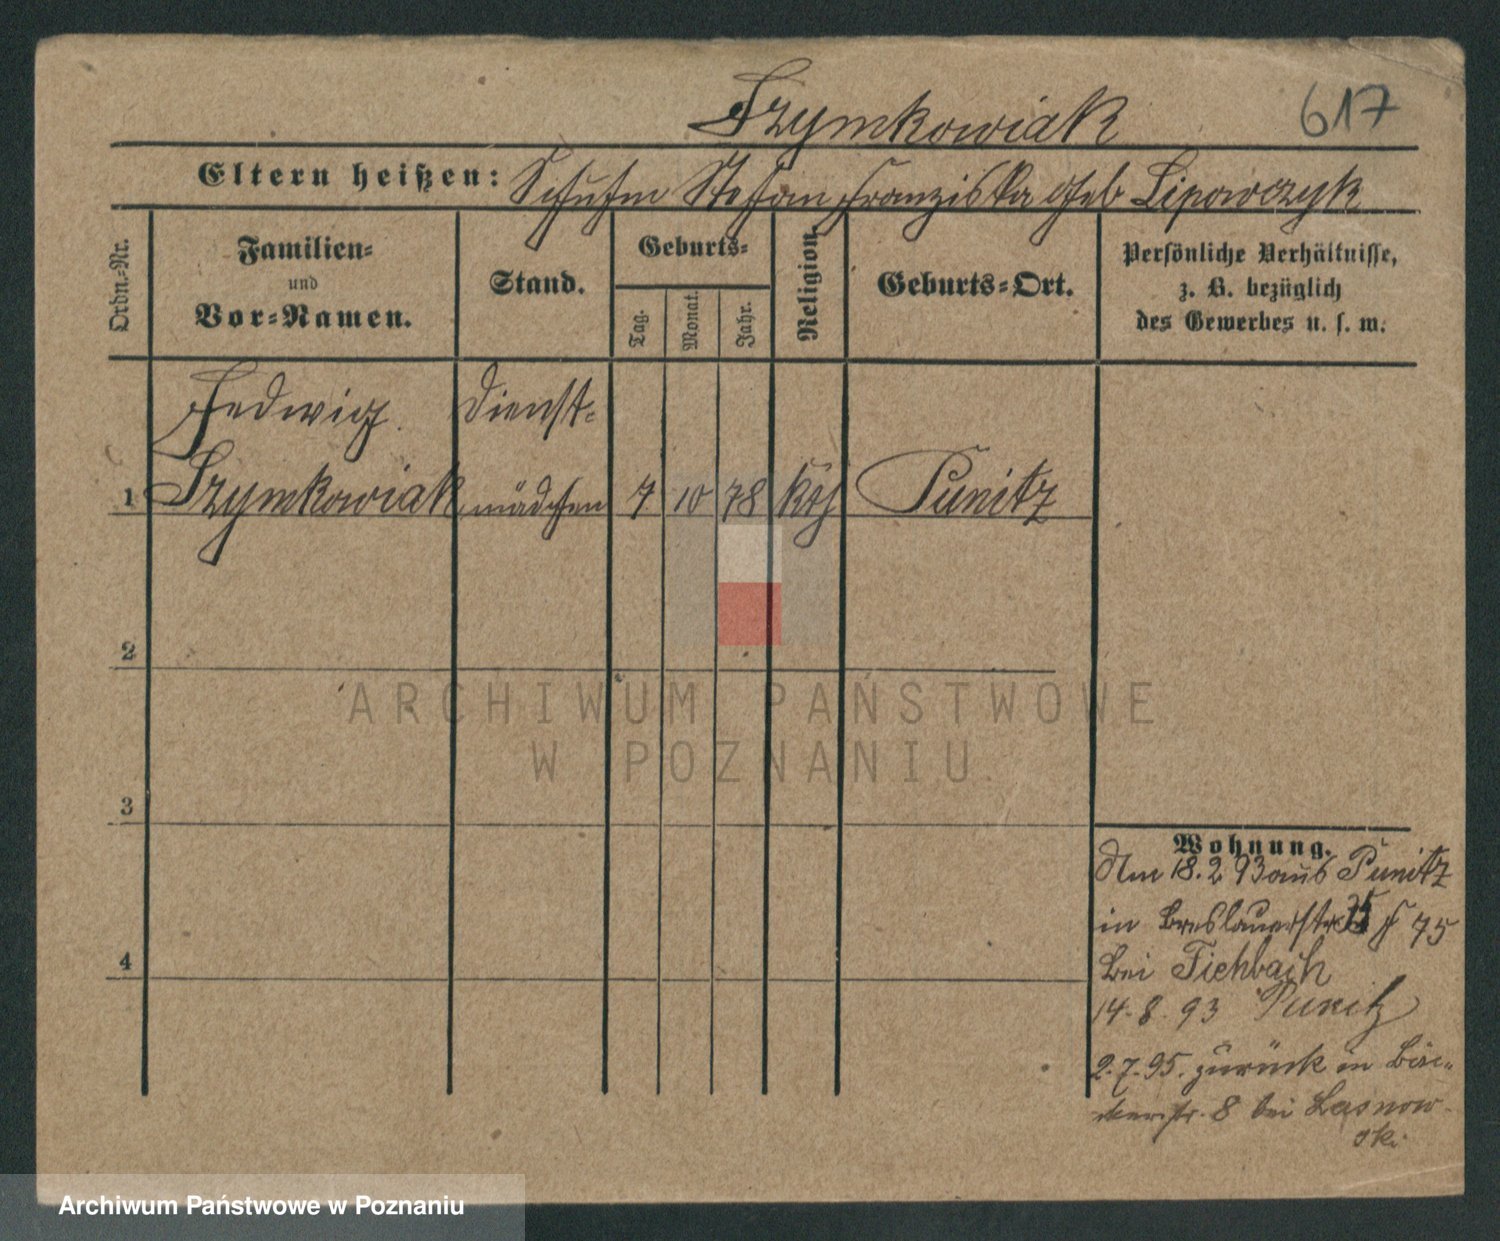 Szymkowiak 617
Eltern heißen: Stefan Franziska geb Lipowczyk
Ordn.-Nr.
Familien-
und
Vor-Namen.
Stand.
Geburts-
Tag.
Monat.
Jahr.
Religion.
Geburts-Ort.
Persönliche Verhältnisse,
z. B. bezüglich
des Gewerbes u. s. w.
Hedwig Dienst-
1 Szymkowiak mädchen 7 10 78 kth Punitz
2
3
4
Wohnung.
Am 18.2 93 aus Punitz
in Breslauerstr 75
bei Fiehbach
14.8.93 Punitz
2.7.95. zurück in Bäc-
kerstr. 8 bei Lasnow-
ski.
ARCHIWUM PAŃSTWOWE
W POZNANIU
Archiwum Państwowe w Poznaniu